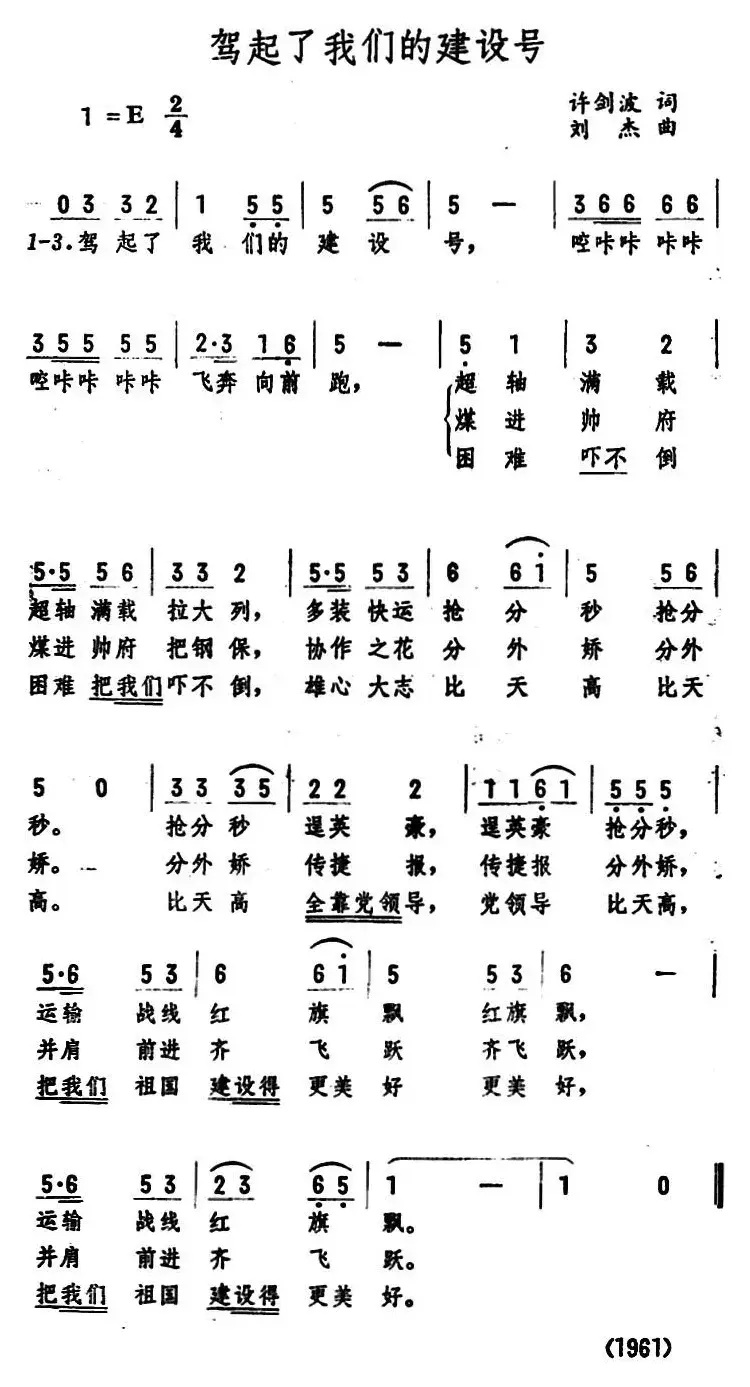 驾起了我们的建设号
1=E 2/4
许剑波 词
刘 杰 曲
0 3 3 2 | 1 5 5 | 5 5 6 | 5 — | 3 6 6 6 6 |
1-3.驾 起了 我 们的 建 设 号， 啌咔咔 咔咔
3 5 5 5 5 | 2·3 1 6 | 5 — | 5 1 | 3 2 |
啌咔咔 咔咔 飞奔 向前 跑， 超 轴 满 载
煤 进 帅 府
困 难 吓不 倒
5·5 5 6 | 3 3 2 | 5·5 5 3 | 6 6 i | 5 5 6 |
超轴 满载 拉大 列， 多装 快运 抢 分 秒 抢分
煤进 帅府 把钢 保， 协作 之花 分 外 娇 分外
困难 把我们 吓不 倒， 雄心 大志 比 天 高 比天
5 0 | 3 3 3 5 | 2 2 2 | 1 1 6 1 | 5 5 5 |
秒。 抢分 秒 逞英 豪， 逞英豪 抢分秒，
娇。 分外 娇 传捷 报， 传捷报 分外娇，
高。 比天 高 全靠党领导， 党领导 比天高，
5·6 5 3 | 6 6 i | 5 5 3 | 6 — |
运输 战线 红 旗 飘 红旗 飘，
并肩 前进 齐 飞 跃 齐飞 跃，
把我们 祖国 建设得 更美 好 更美 好，
5·6 5 3 | 2 3 6 5 | 1 — | 1 0 ‖
运输 战线 红 旗 飘。
并肩 前进 齐 飞 跃。
把我们 祖国 建设得 更美 好。
(1961)